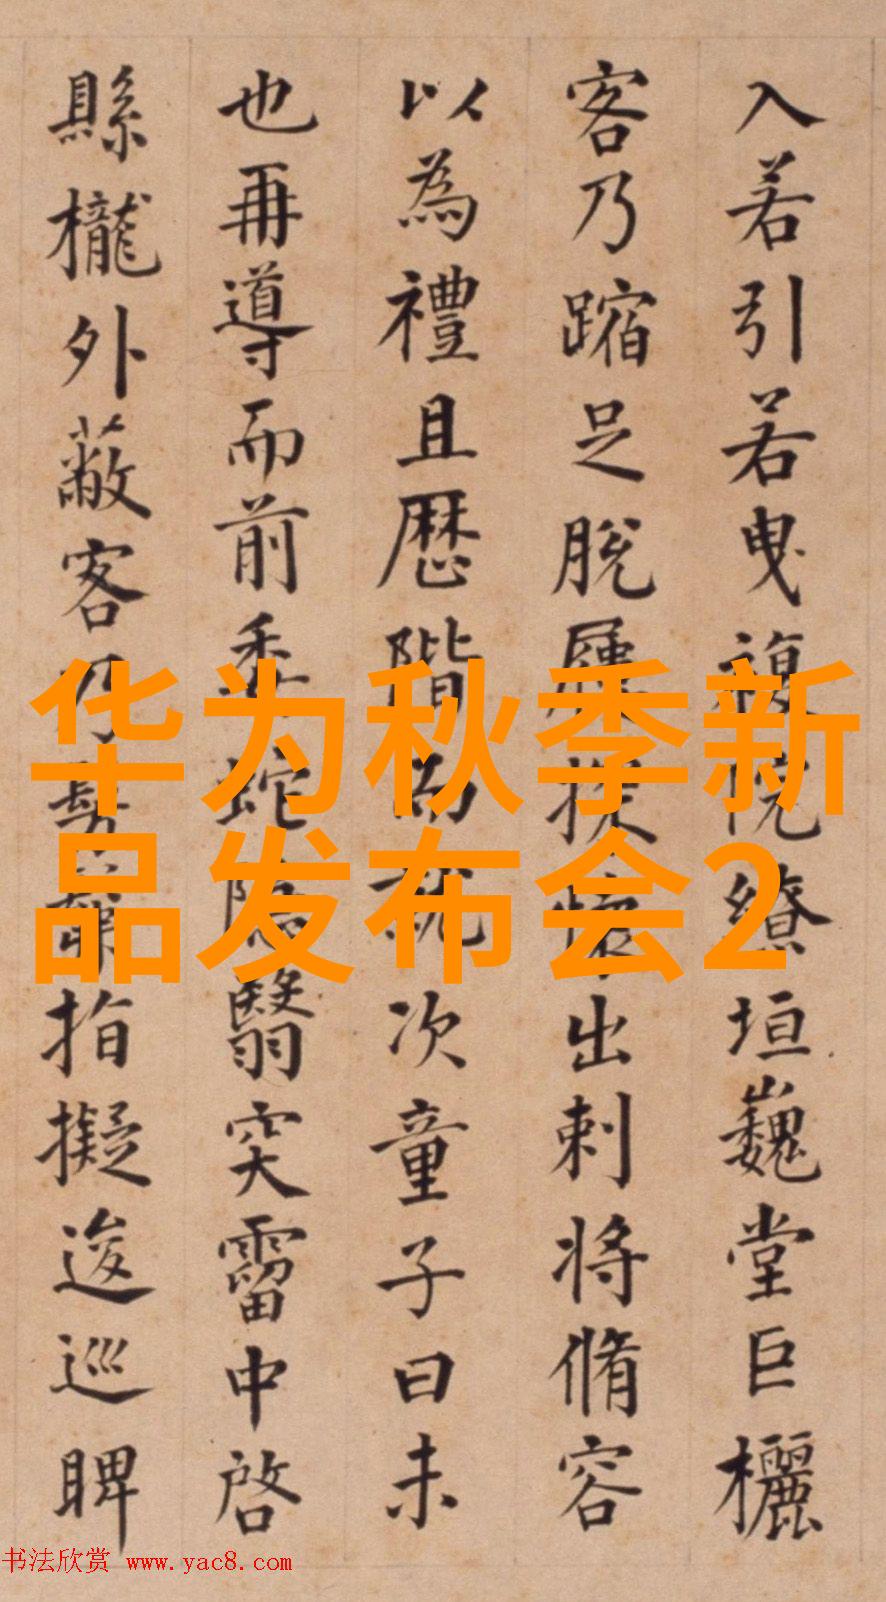 入若引若曳複院繚垣巍堂巨欐
客乃蹜足脫屨探懷出刺將脩容
以為禮且歷階而就次童子曰未
也再導而前委蛇隱翳突霤中啓
縣櫳外蔽客乃勢指擬逡巡睥
华为秋季新
品发布会2
书法欣赏 www.yac8.com